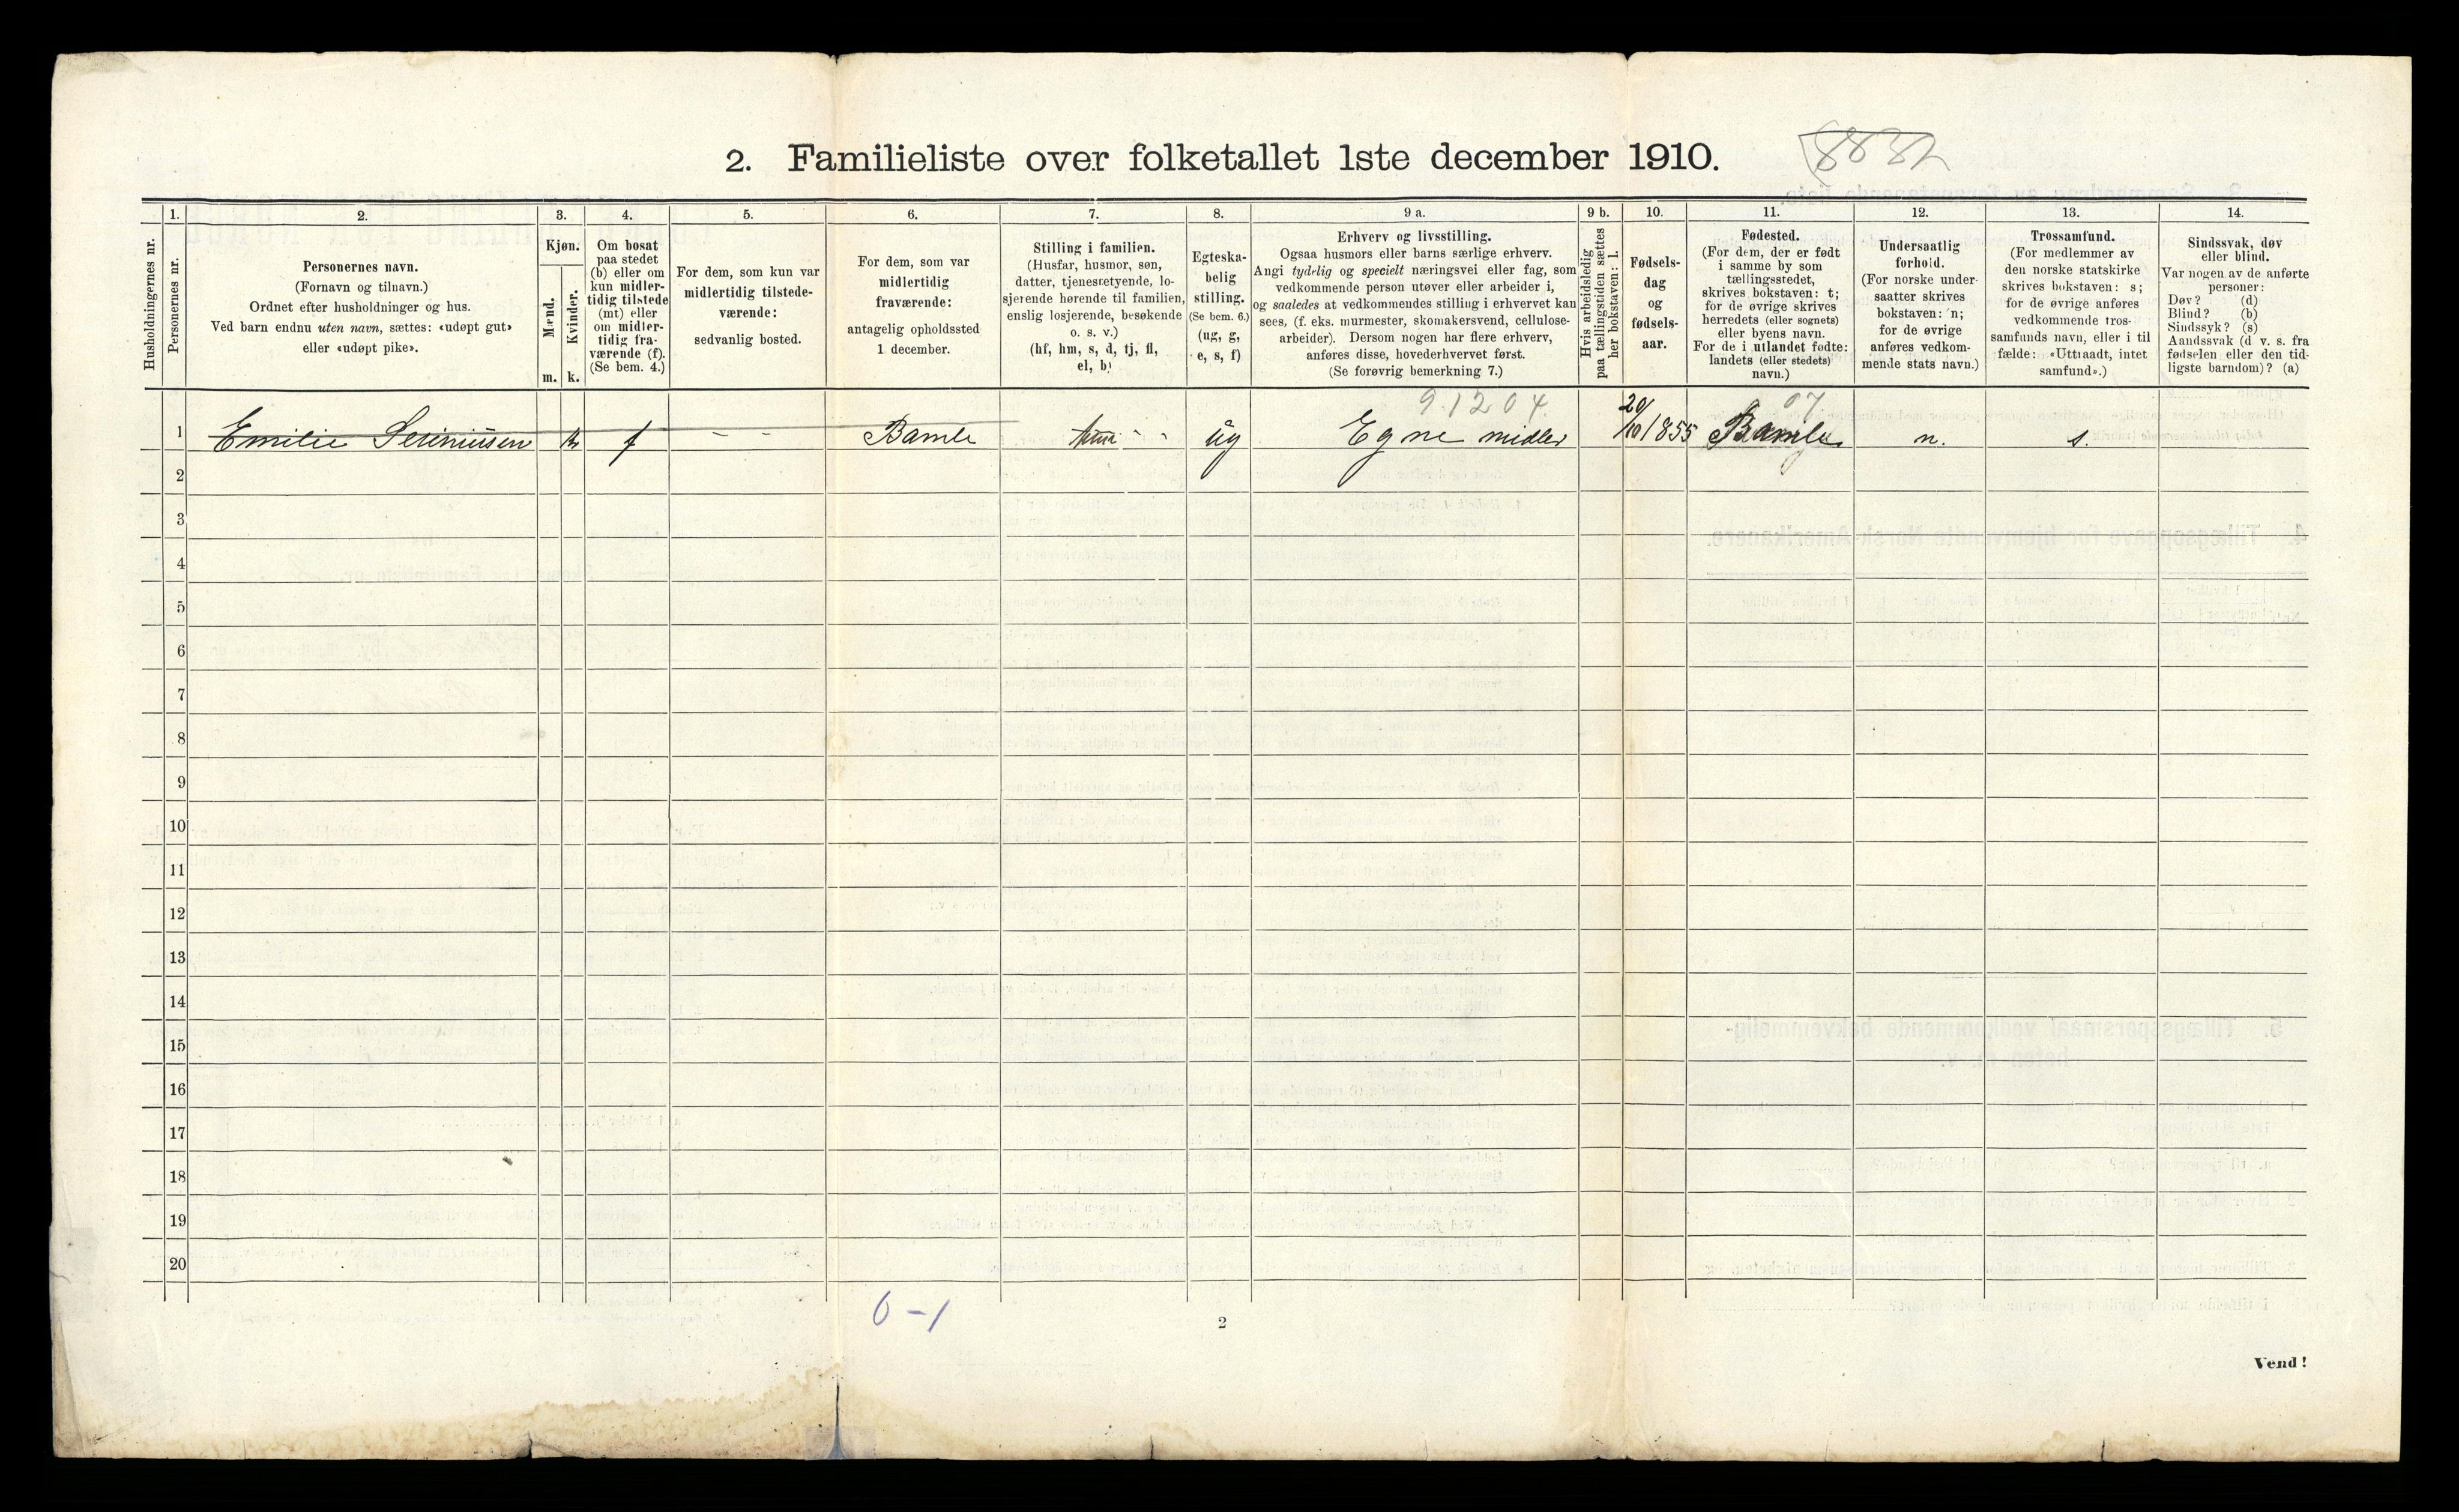 2. Familieliste over folketallet 1ste december 1910.
8832
Husholdningernes nr.
1.
Personernes nr.
2.
Personernes navn.
(Fornavn og tilnavn.)
Ordnet efter husholdninger og hus.
Ved barn endnu uten navn, sættes: «udøpt gut»
eller «udøpt pike».
3.
Kjøn.
Mænd.
Kvinder.
m. k.
4.
Om bosat
paa stedet
(b) eller om
kun midler-
tidig tilstede
(mt) eller
om midler-
tidig fra-
værende (f).
(Se bem. 4.)
5.
For dem, som kun var
midlertidig tilstede-
værende:
sedvanlig bosted.
6.
For dem, som var
midlertidig
fraværende:
antagelig opholdssted
1 december.
7.
Stilling i familien.
(Husfar, husmor, søn,
datter, tjenestetyende, lo-
sjerende hørende til familien,
enslig losjerende, besøkende
o. s. v.)
(hf, hm, s, d, tj, fl,
el, b)
8.
Egteska-
belig
stilling.
(Se bem. 6.)
(ug, g,
e, s, f)
9 a.
Erhverv og livsstilling.
Ogsaa husmors eller barns særlige erhverv.
Angi tydelig og specielt næringsvei eller fag, som
vedkommende person utøver eller arbeider i,
og saaledes at vedkommendes stilling i erhvervet kan
sees, (f. eks. murmester, skomakersvend, cellulose-
arbeider). Dersom nogen har flere erhverv,
anføres disse, hovederhvervet først.
(Se forøvrig bemerkning 7.)
9 b.
Hvis arbeidsledig
paa tællingstiden sættes
her bokstaven: l.
10.
Fødsels-
dag
og
fødsels-
aar.
11.
Fødested.
(For dem, der er født
i samme by som
tællingsstedet,
skrives bokstaven: t;
for de øvrige skrives
herredets (eller sognets)
eller byens navn.
For de i utlandet fødte:
landets (eller stedets)
navn.)
12.
Undersaatlig
forhold.
(For norske under-
saatter skrives
bokstaven: n;
for de øvrige
anføres vedkom-
mende stats navn.)
13.
Trossamfund.
(For medlemmer av
den norske statskirke
skrives bokstaven: s;
for de øvrige anføres
vedkommende tros-
samfunds navn, eller i til
fælde: «Uttraadt, intet
samfund».)
14.
Sindssvak, døv
eller blind.
Var nogen av de anførte
personer:
Døv? (d)
Blind? (b)
Sindssyk? (s)
Aandssvak (d v. s. fra
fødselen eller den tid-
ligste barndom)? (a)
9.1204. 07
1 Emilie k f - - Bamle - - ug Egne midler 20/10 1855 Bamle n. s.
2
3
4
5
6
7
8
9
10
11
12
13
14
15
16
17
18
19
20
0-1
2
Vend!